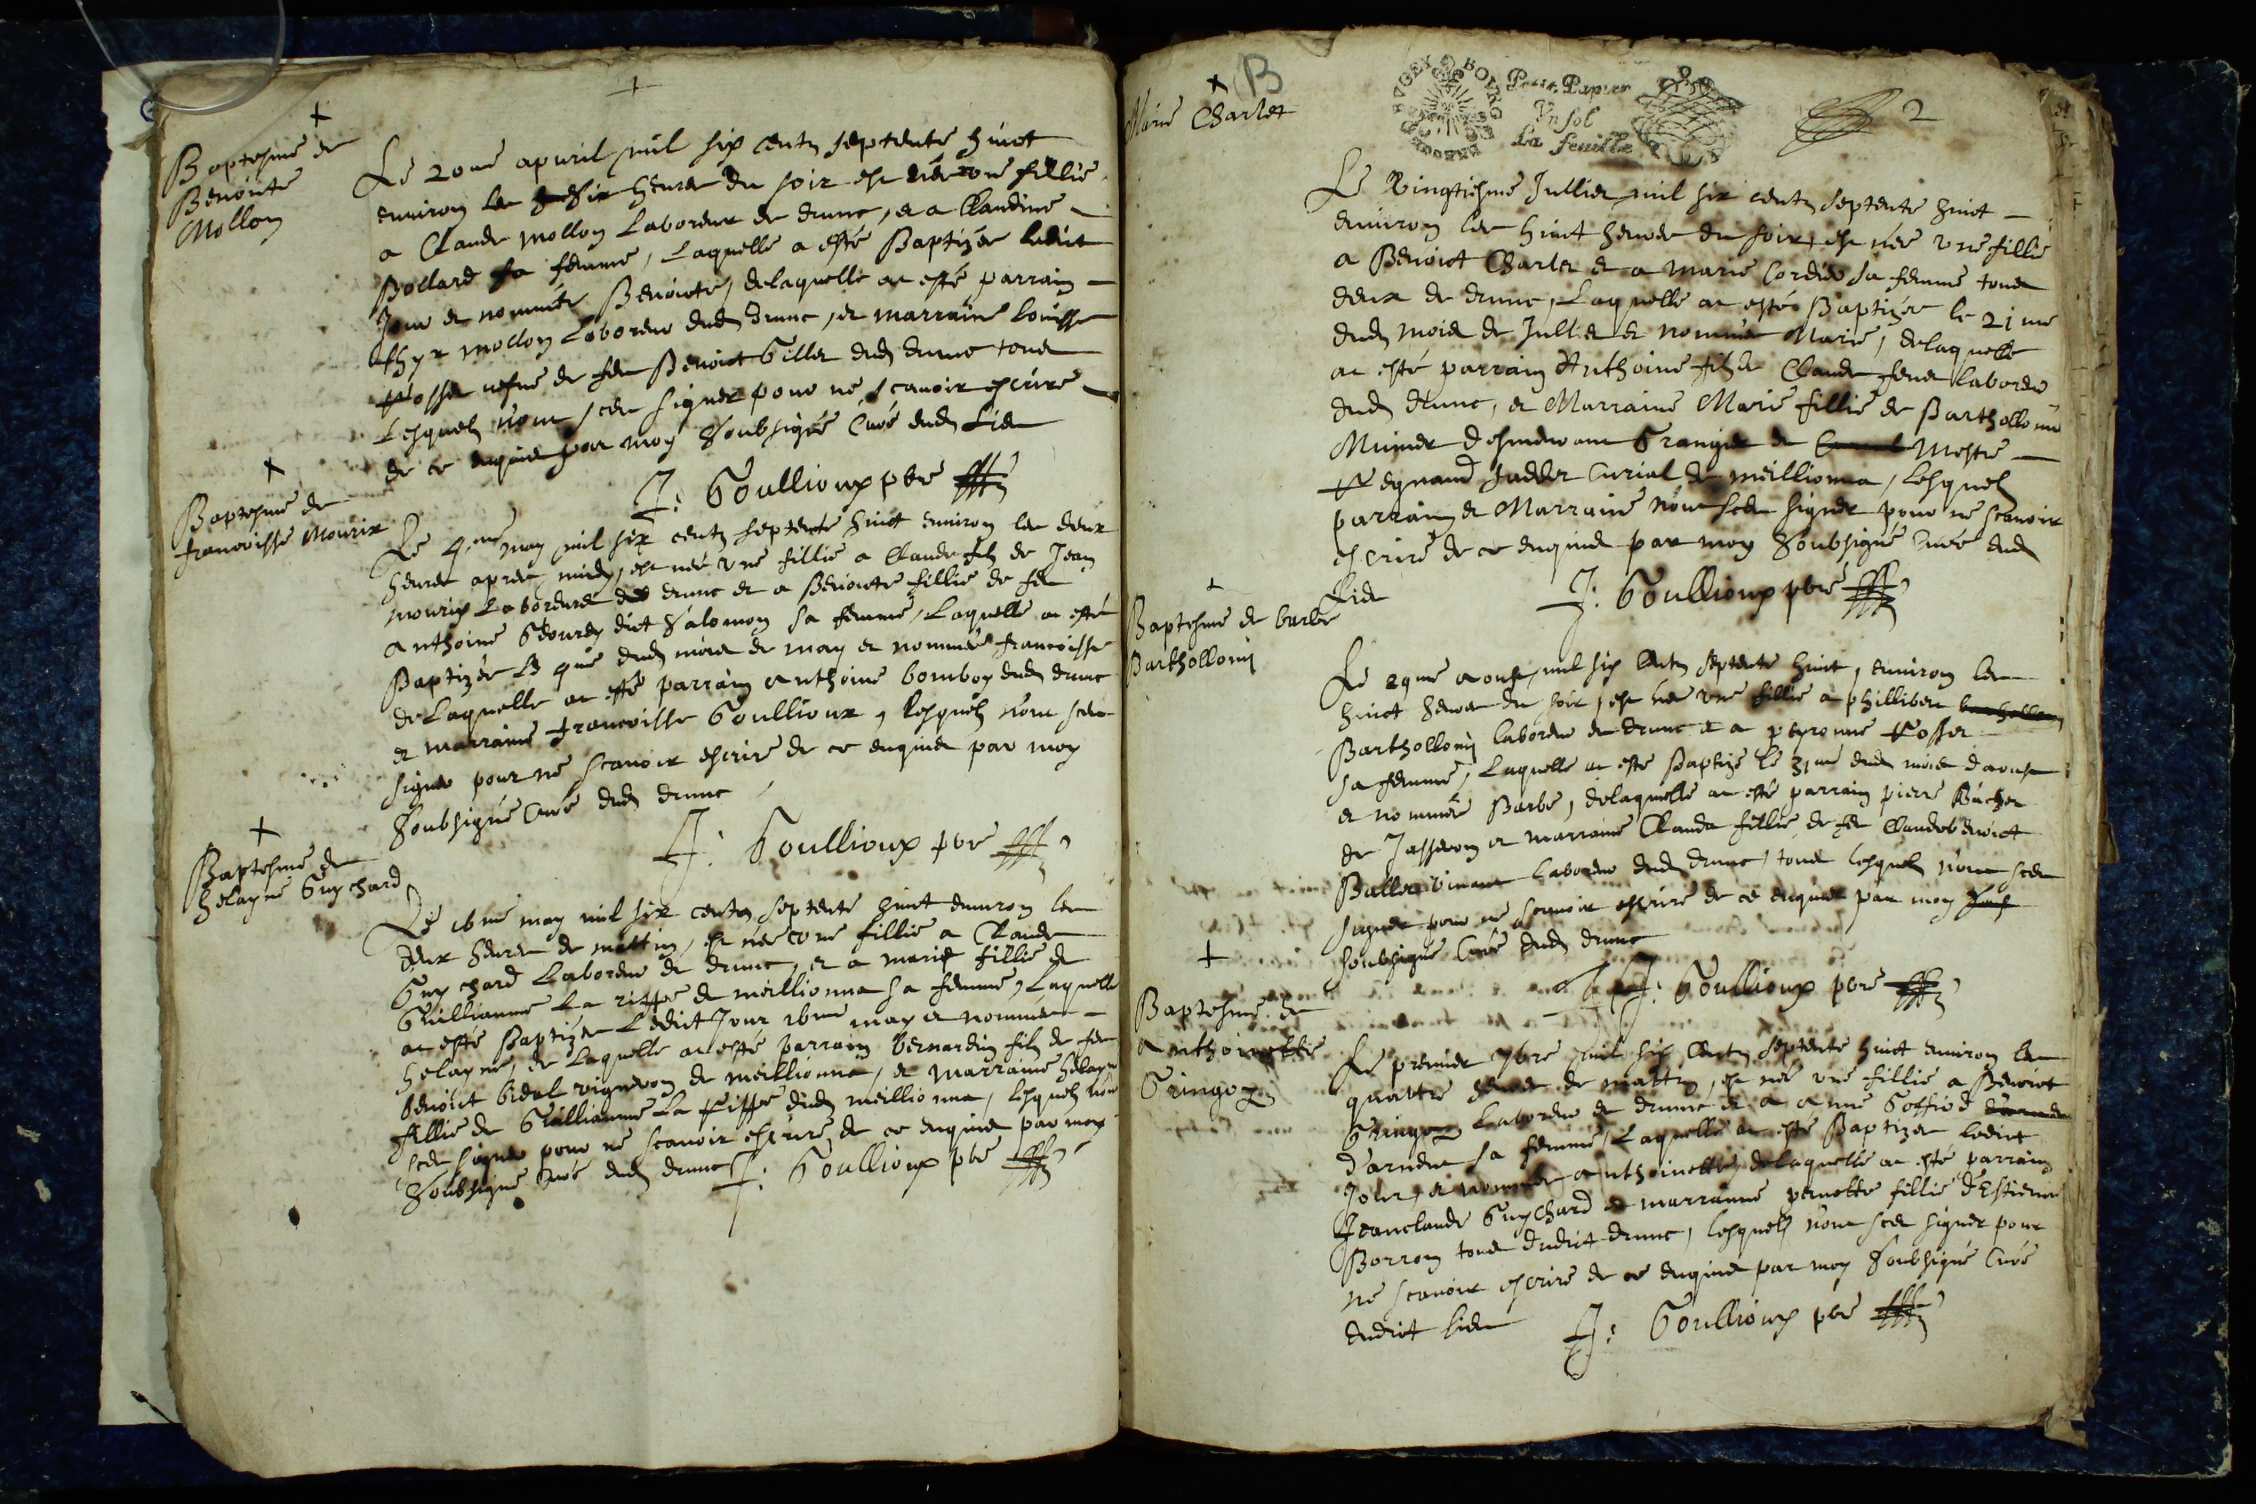 Baptesme de
Benoite
Mollon
Le 20me apuril mil six centz septente huict
environ les six heures du soir est née une fillie
a Claude Mollon Laboreur de drunc, et a Claudine
Bollard sa femme, Laquelle a esté Baptizée ledict
Jour et nommée Benoite, delaquelle at esté parrain
Mollon Laboreur dud drunc, et marraine louisse
Rosset vefve de feu Benoict Gillet dud drunc tous
Lesquelz n'ont sceu signer pour ne scavoir escrire
de ce enquis par moy Soubsigné Curé dud Lieu
J: Goullioux pbre
Baptesme de
francoisse Mourix
Le 4.me may mil six centz septente huict environ les deux
heures apres midy, est née une fillie a Claude filz de Jean
mourix Laboreur de drunc et a Benoite fillie de feu
Anthoine dict Salomon sa femme, Laquelle at esté
Baptizée le 4me dud mois de may et nommée francoisse
deLaquelle at esté parrain anthoine bomboy dud drunc
et marraine francoisse Goullioux, lesquelz n'ont sceu
signer pour ne scavoir escrire de ce enquis par moy
Soubsigné Curé dud drunc
J: Goullioux pbre
Baptesme de
helayne Guychard
Le 16me may mil six centz septente huict environ les
deux heures de mattin, est née une fillie a Claude
Guychard Laboreur de drunc, et a marie fillie de
Guillianme La riffe de meillionna sa femme, Laquelle
at esté Baptizée Ledict Jour 16me may et nommée
helayne, de Laquelle at esté parrain bernardin filz de feu
benoict bidal vigneron de meillionna, et marraine helayne
fillie de Guillianme La Riffe dud meillionna, lesquelz nont
sceu signer pour ne scavoir escrire de ce enquis par moy
Soubsigné Curé dud drunc J: Goullioux pbre
B
Marie Charlet
BVGEY BOVRG
Petit Papier
Vn sol
La feuille
2
Le Vingtiesme Jullier mil six centz septente huict
environ les huict heures du soir, est née une fillie
a Benoict Charlet et a Marie Cordier sa femme tous
deux de drunc, Laquelle at esté Baptizée le 21me
dud mois de Jullier et nommée Marie, delaquelle
at esté parrain Anthoine filz de Claude laboreur
dud drunc, et Marraine Marie fillie de Barthollomie
Munier Granger de Mestre
Curial de meillionna, lesquelz
parrain et Marraine n'ont sceu signer pour ne scavoir
escrire de ce enquis par moy Soubsigné Curé dud
Lieu
J: Goullioux pbre
Baptesme de barbe
Barthollomi
Le 29me aoust mil six Centz septente huict, environ les
huict heures du soir, est née une fillie a phillibert
Barthollomi laboreur de drunc et a peronne Rosset
sa femme, Laquelle at esté Baptizé le 31me dud mois daoust
et nommée Barbe, delaquelle at esté parrain pierre Bucher
de Jasseron et marraine Clauda fillie de feu Claude benoict
laboreur dud drunc, tous lesquelz n'ont sceu
signer pour ne scavoir escrire de ce enquis par moy
soubsigné Curé dud drunc
J: Goullioux pbre
Baptesme de
anthoinette
Gringoz
Le premier 7bre mil six Centz septente huict environ les
quattre heures de mattin, est née une fillie a Benoict
Gringoz Laboreur de drunc et a anne Goffied
d'arnden sa femme, Laquelle at esté Baptizée ledict
Jour, et nommée anthoinette, delaquelle at esté parrain
Jeanclaude Guychard et marrainne pernette fillie d'Estienne
Borron tous dudict drunc, lesquelz n'ont sceu signer pour
ne scavoir escrire de ce enquis par moy Soubsigné Curé
dudict lieu J: Goullioux pbre